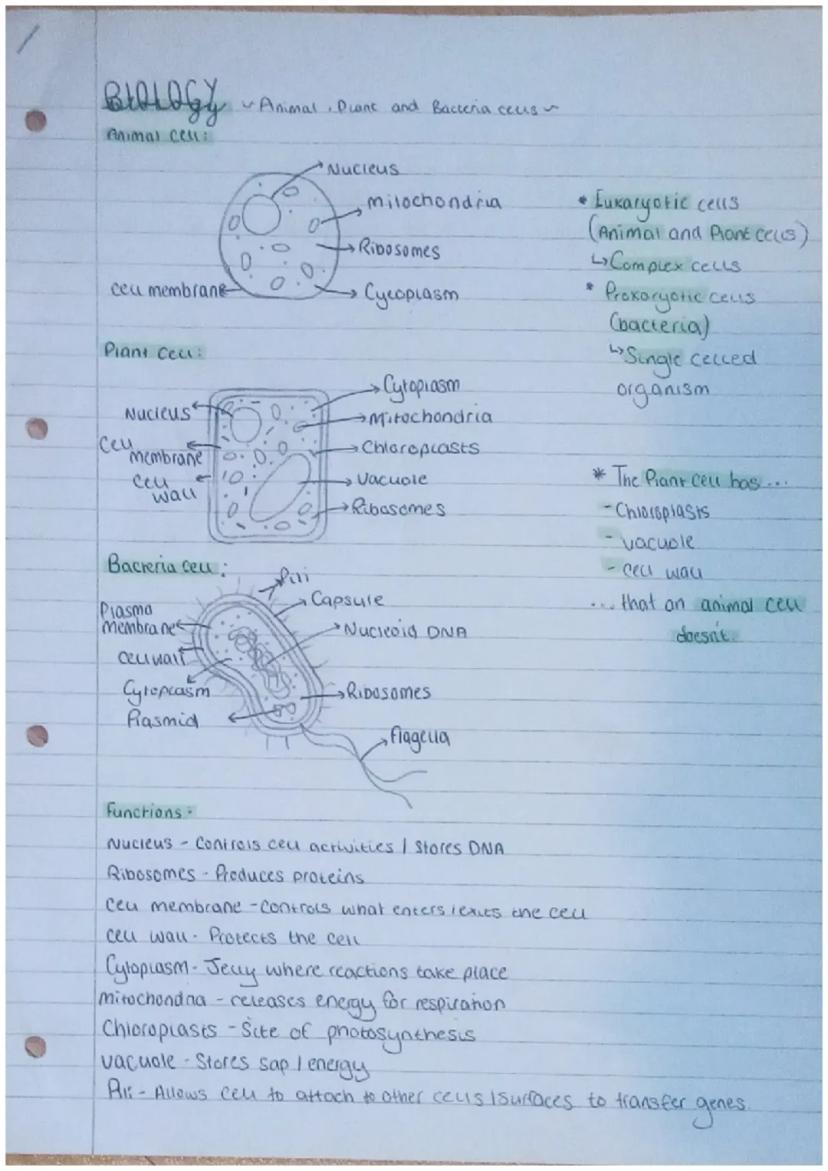 BIOLOGY ~ Animal, Plant and Bacteria cells ~
Animal cell:
Nucleus
Mitochondria
Ribosomes
cell membrane
Cycoplasm
* Eukaryotic cells
(Animal and Plant cells)
↳ Complex cells
* Prokaryotic cells
(bacteria)
↳ Single celled
organism
Plant cell:
Cytoplasm
Nucleus
Mitochondria
Cell
membrane
Chloroplasts
Cell
wall
Vacuole
Ribosomes
* The Plant cell has...
- Chloroplasts
- vacuole
- cell wall
... that an animal cell
doesn't.
Bacteria cell:
Pili
Capsule
Plasma
membrane
Nucleoid DNA
cell wall
Cytoplasm
Ribosomes
Plasmid
Flagella
Functions:
Nucleus - Controls cell activities / Stores DNA
Ribosomes - Produces proteins
Cell membrane - Controls what enters / exits the cell
Cell wall - Protects the cell
Cytoplasm - Jelly where reactions take place
Mitochondria - releases energy for respiration
Chloroplasts - Site of photosynthesis
Vacuole - Stores sap / energy
Pili - Allows cell to attach to other cells / surfaces to transfer genes.